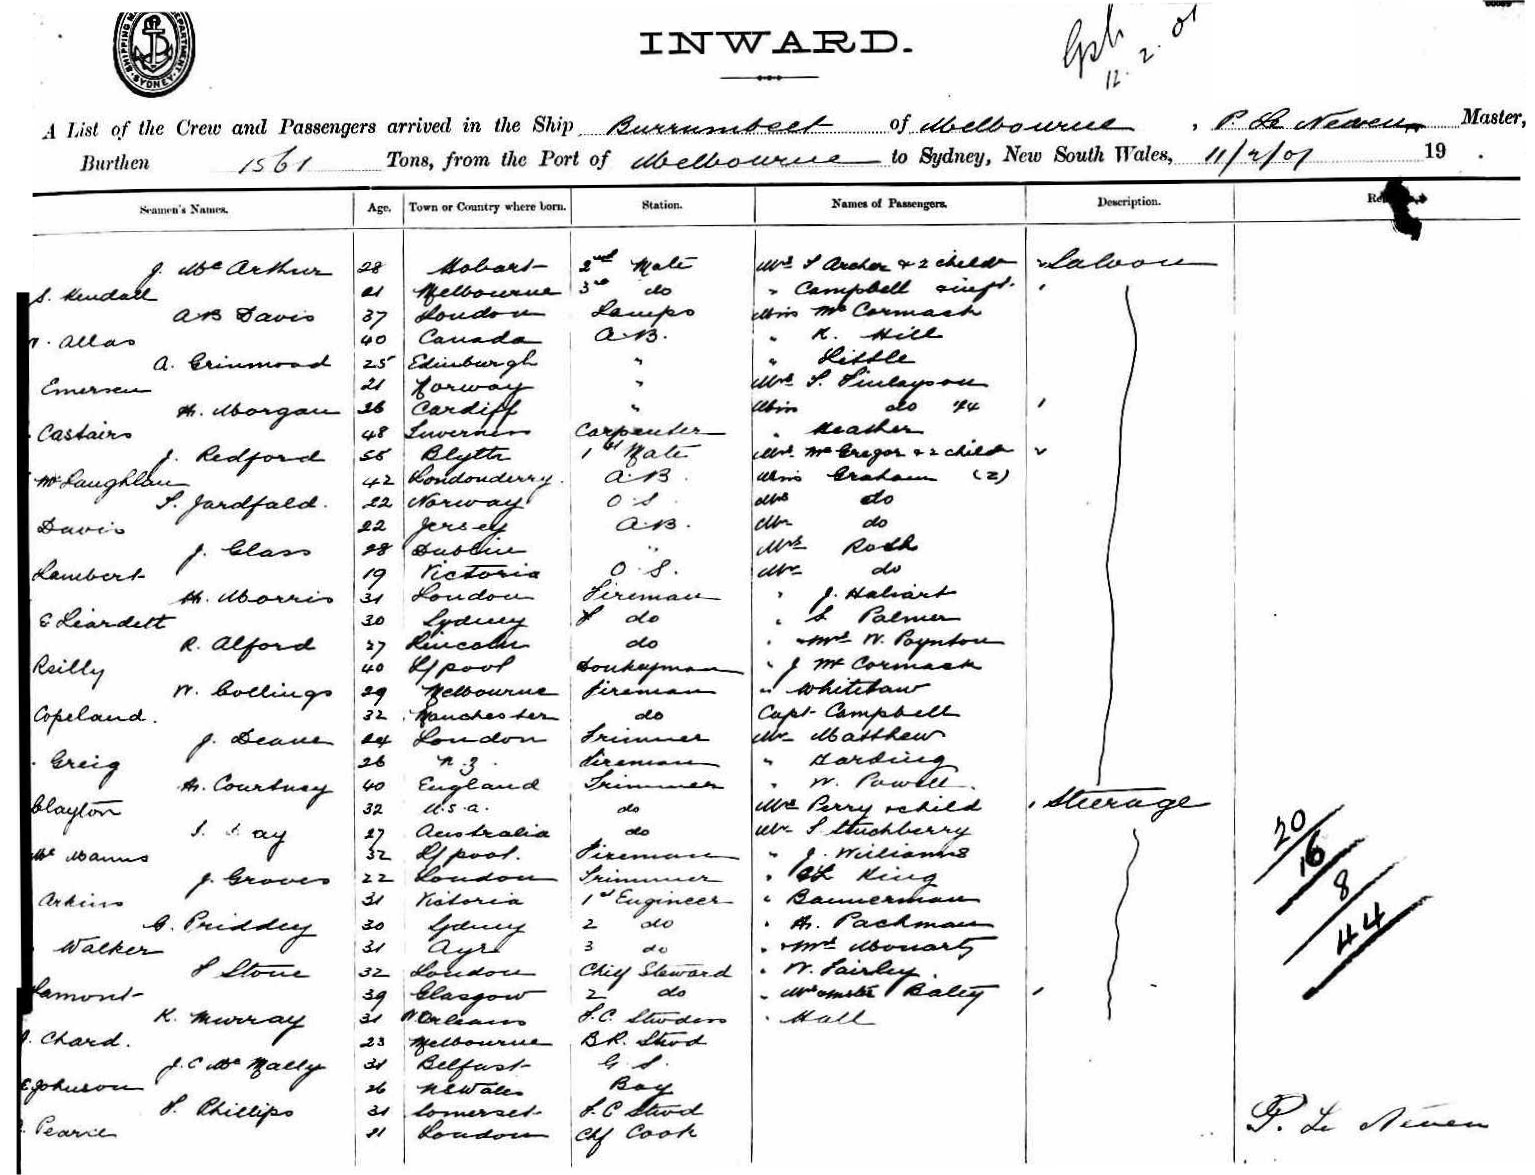 SHIPPING MASTER'S DEPARTMENT · SYDNEY ·
INWARD.
12.2.01
A List of the Crew and Passengers arrived in the Ship Burrumbeet of Melbourne, P. Le Neven Master,
Burthen 1561 Tons, from the Port of Melbourne to Sydney, New South Wales, 11/2/01 19 .
Seamen's Names. Age. Town or Country where born. Station. Names of Passengers. Description.
J. McArthur 28 Hobart 2nd Mate Mrs S Archer & 2 childn Saloon
S. Kendall 21 Melbourne 3rd do " Campbell & inft.
AB Davis 37 London Lamps Miss McCormack
Allas 40 Canada A.B. " K. Hill
A. Grinmond 25 Edinburgh " " Little
Emersen 21 Norway " Mrs S. Finlayson
H. Morgan 26 Cardiff " Miss do
Castairs 48 Inverness Carpenter " Meather
J. Redford 55 Blyth 1st Mate Mrs McGregor & 2 childn
McLaughlan 42 Londonderry. A.B. Miss Graham (2)
S. Jardfald. 22 Norway O S. Mrs do
Davis 22 Jersey A.B. Mr do
J. Glass 28 Dublin " Mrs Roth
Lambert 19 Victoria O.S. Mr do
H. Morris 31 London Fireman " J. Haliart
E Liardett 30 Sydney do " S Palmer
R. Alford 27 Lincoln do " Mrs W. Poynton
Reilly 40 L/pool Donkeyman " J McCormack
W. Collings 29 Melbourne Fireman " Whitelaw
Copeland. 32 Manchester do Capt Campbell
J. Deane 24 London Trimmer Mr Matthew
Greig 26 N.Z. Fireman " Harding
H. Courtney 40 England Trimmer " W. Powell.
Clayton 32 U.S.A. do Mrs Perry & child Steerage
27 Australia do Mr S Stuchberry
McManus 32 L/pool. Fireman " J. Williams
J. Groves 22 London Trimmer " King
Arkins 31 Victoria 1st Engineer " Bannerman
G. Priddey 30 Sydney 2 do " H. Pachman
Walker 31 Ayr 3 do " Mrs Moriarty
F Stone 32 London Chief Steward " W. Fairley.
Lamont 39 Glasgow 2 do " Mrs & mstr Baley
K. Murray 31 N Orleans F.C. Stwdess " Hall
Chard. 23 Melbourne B.R. Stwd
J.C McNally 31 Belfast G.S.
E Johnson 26 NSWales Boy
F. Phillips 31 Somerset F.C Stwd
Pearce 21 London Chf Cook
20
16
8
44
P. Le Neven